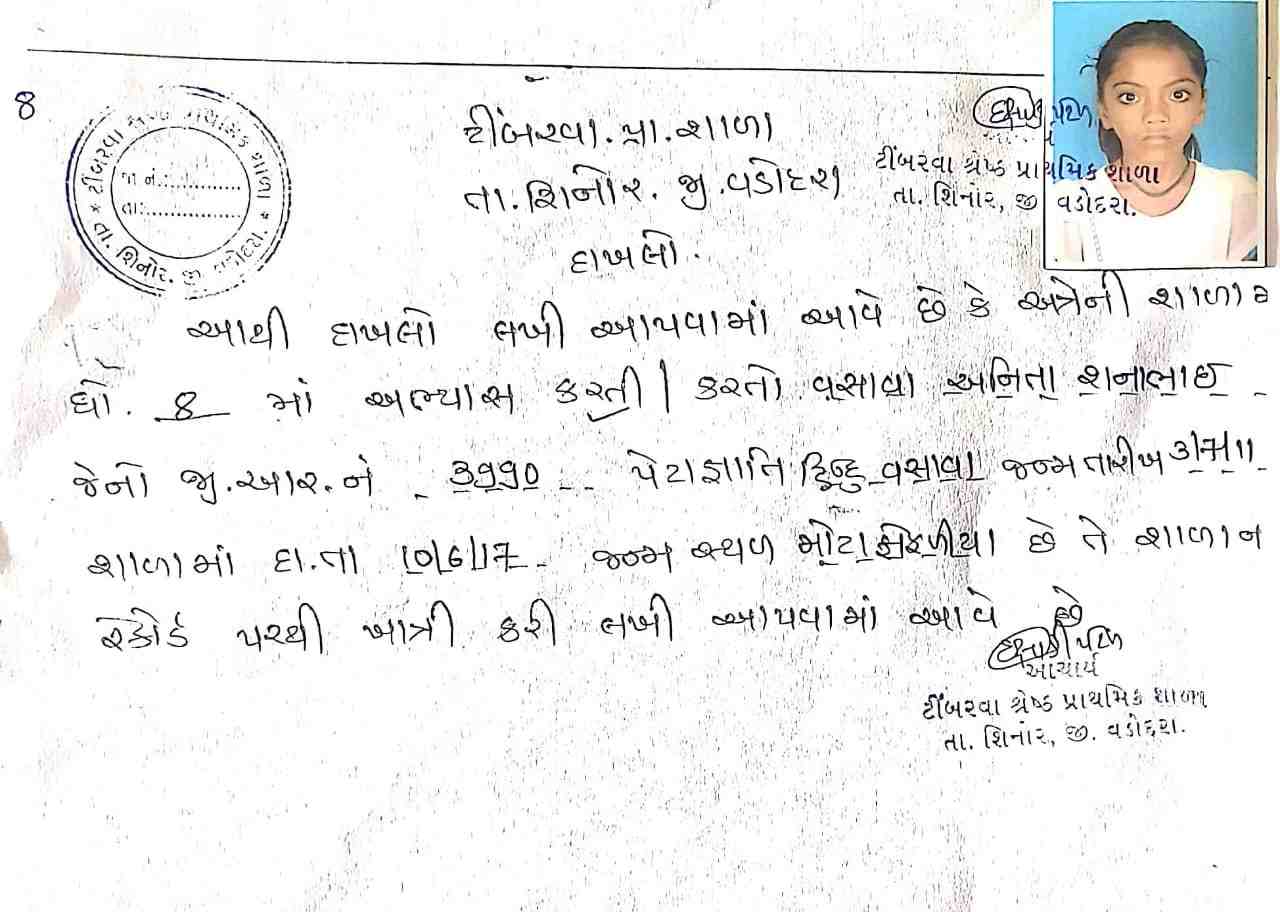 8
ટીંબરવા.પ્રા.શાળા
તા.શિનોર. જી.વડોદરા
દાખલો.
ટીંબરવા શ્રેષ્ઠ પ્રાથમિક શાળા
તા. શિનોર, જી વડોદરા.
પ્રાથમિક શાળા * ટીંબરવા
જા નં.:
તા:
તા. શિનોર. જી વડોદરા.
આથી દાખલો લખી આપવામાં આવે છે કે અત્રેની શાળામાં
ધો. 8 માં અભ્યાસ કરતી / કરતો વસાવા અનિતા શનાભાઇ
જેનો જી.આર.નં 3990 પેટાજ્ઞાતિ હિન્દુ વસાવા જન્મ તારીખ
શાળામાં દા.તા 10/6/17 જન્મ સ્થળ મોટા છે તે શાળાના
રેકોર્ડ પરથી ખાત્રી કરી લખી આપવામાં આવે છે
આચાર્ય
ટીંબરવા શ્રેષ્ઠ પ્રાથમિક શાળા
તા. શિનોર, જી. વડોદરા.